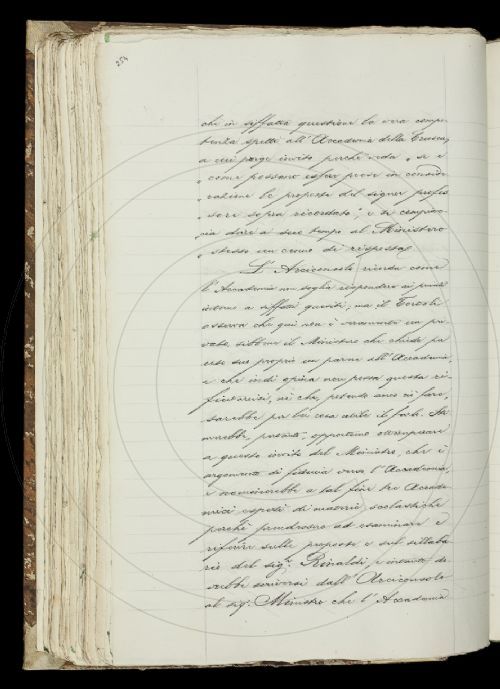 254
che in siffatta questione la vera compe-
tenza spetti all'Accademia della Crusca,
a cui porge invito perchè veda „ se e
„ come possano esser prese in conside-
„ razione le proposte del signor profes-
„ sore sopra ricordato; e si compiac-
cia dare a suo tempo al Ministero
„ stesso un cenno di risposta.
L'Arciconsolo ricorda come
l'Accademia non soglia rispondere ai privati
intorno a siffatti quesiti; ma il
osserva che qui non è veramente un pri-
vato, sibbene il Ministero che chiede per
conto suo proprio un parere all'Accademia,
e che indi opina non possa questa ri-
fiutarvisi, nè che, potendo anco ciò fare,
sarebbe per lei cosa utile il farlo. Sti-
merebbe, pertanto, opportuno ottemperare
a questo invito del Ministro, che è
argomento di fiducia verso l'Accademia,
e nominerebbe a tal fine tre Accade-
mici esperti di materie scolastiche
perchè prendessero ad esaminare e
riferire sulle proposte e sul sillaba-
rio del sig.r Rinaldi, e intanto do-
vrebbe scriversi dall'Arciconsolo
al sig.r Ministro che l'Accademia